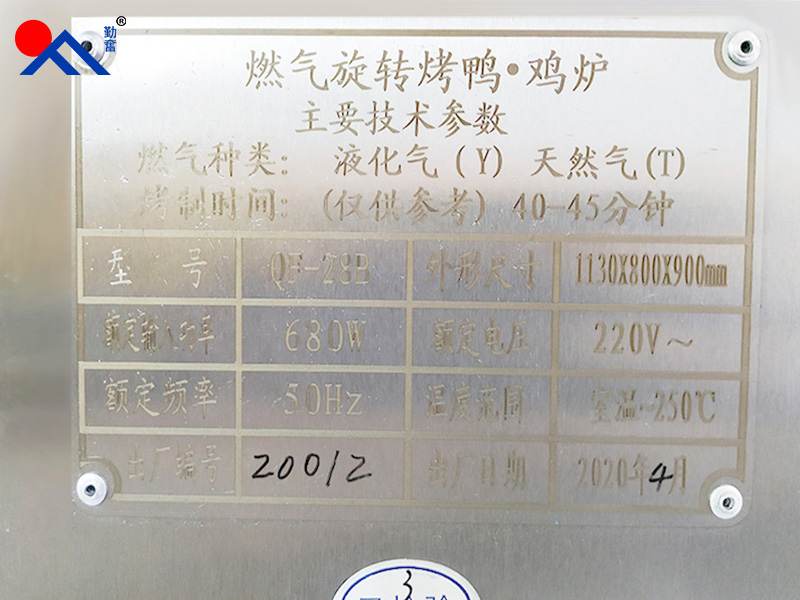 勤奮®
燃气旋转烤鸭·鸡炉
主要技术参数
燃气种类: 液化气(Y) 天然气(T)
烤制时间: (仅供参考) 40-45分钟
型 号 QF-28B 外形尺寸 1130X800X900mm
额定输入功率 680W 额定电压 220V~
额定频率 50Hz 温度范围 室温-250℃
出厂编号 20012 出厂日期 2020年4月
3